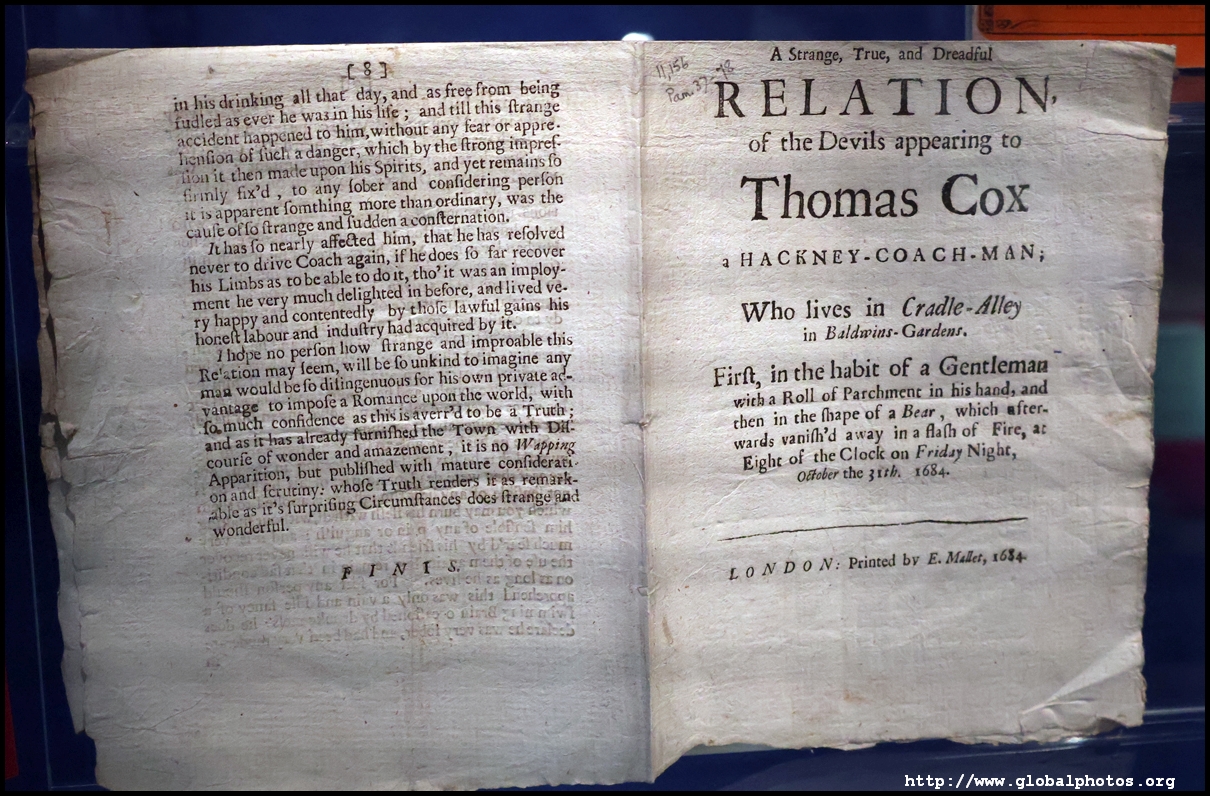 [ 8 ]
in his drinking all that day, and as free from being
fudled as ever he was in his life ; and till this ſtrange
accident happened to him, without any fear or appre-
henſion of ſuch a danger, which by the ſtrong impreſ-
ſion it then made upon his Spirits, and yet remains ſo
firmly fix'd , to any ſober and conſidering perſon
it is apparent ſomthing more than ordinary, was the
cauſe of ſo ſtrange and ſudden a conſternation.
It has ſo nearly affected him, that he has reſolved
never to drive Coach again, if he does ſo far recover
his Limbs as to be able to do it, tho' it was an imploy-
ment he very much delighted in before, and lived ve-
ry happy and contentedly by thoſe lawful gains his
honeſt labour and induſtry had acquired by it.
I hope no perſon how ſtrange and improable this
Relation may ſeem, will be ſo unkind to imagine any
man would be ſo diſingenuous for his own private ad-
vantage to impoſe a Romance upon the world, with
ſo much confidence as this is averr'd to be a Truth ;
and as it has already furniſhed the Town with Diſ-
courſe of wonder and amazement , it is no Wapping
Apparition, but publiſhed with mature conſiderati-
on and ſcrutiny: whoſe Truth renders it as remark-
able as it's ſurpriſing Circumſtances does ſtrange and
wonderful.
F I N I S.
11,156
Pam. 37-78
A Strange, True, and Dreadful
RELATION,
of the Devils appearing to
Thomas Cox
a HACKNEY-COACH-MAN;
Who lives in Cradle-Alley
in Baldwins-Gardens.
Firſt, in the habit of a Gentleman
with a Roll of Parchment in his hand, and
then in the ſhape of a Bear , which after-
wards vaniſh'd away in a flaſh of Fire, at
Eight of the Clock on Friday Night,
October the 31th. 1684.
LONDON: Printed by E. Mallet, 1684.
http://www.globalphotos.org